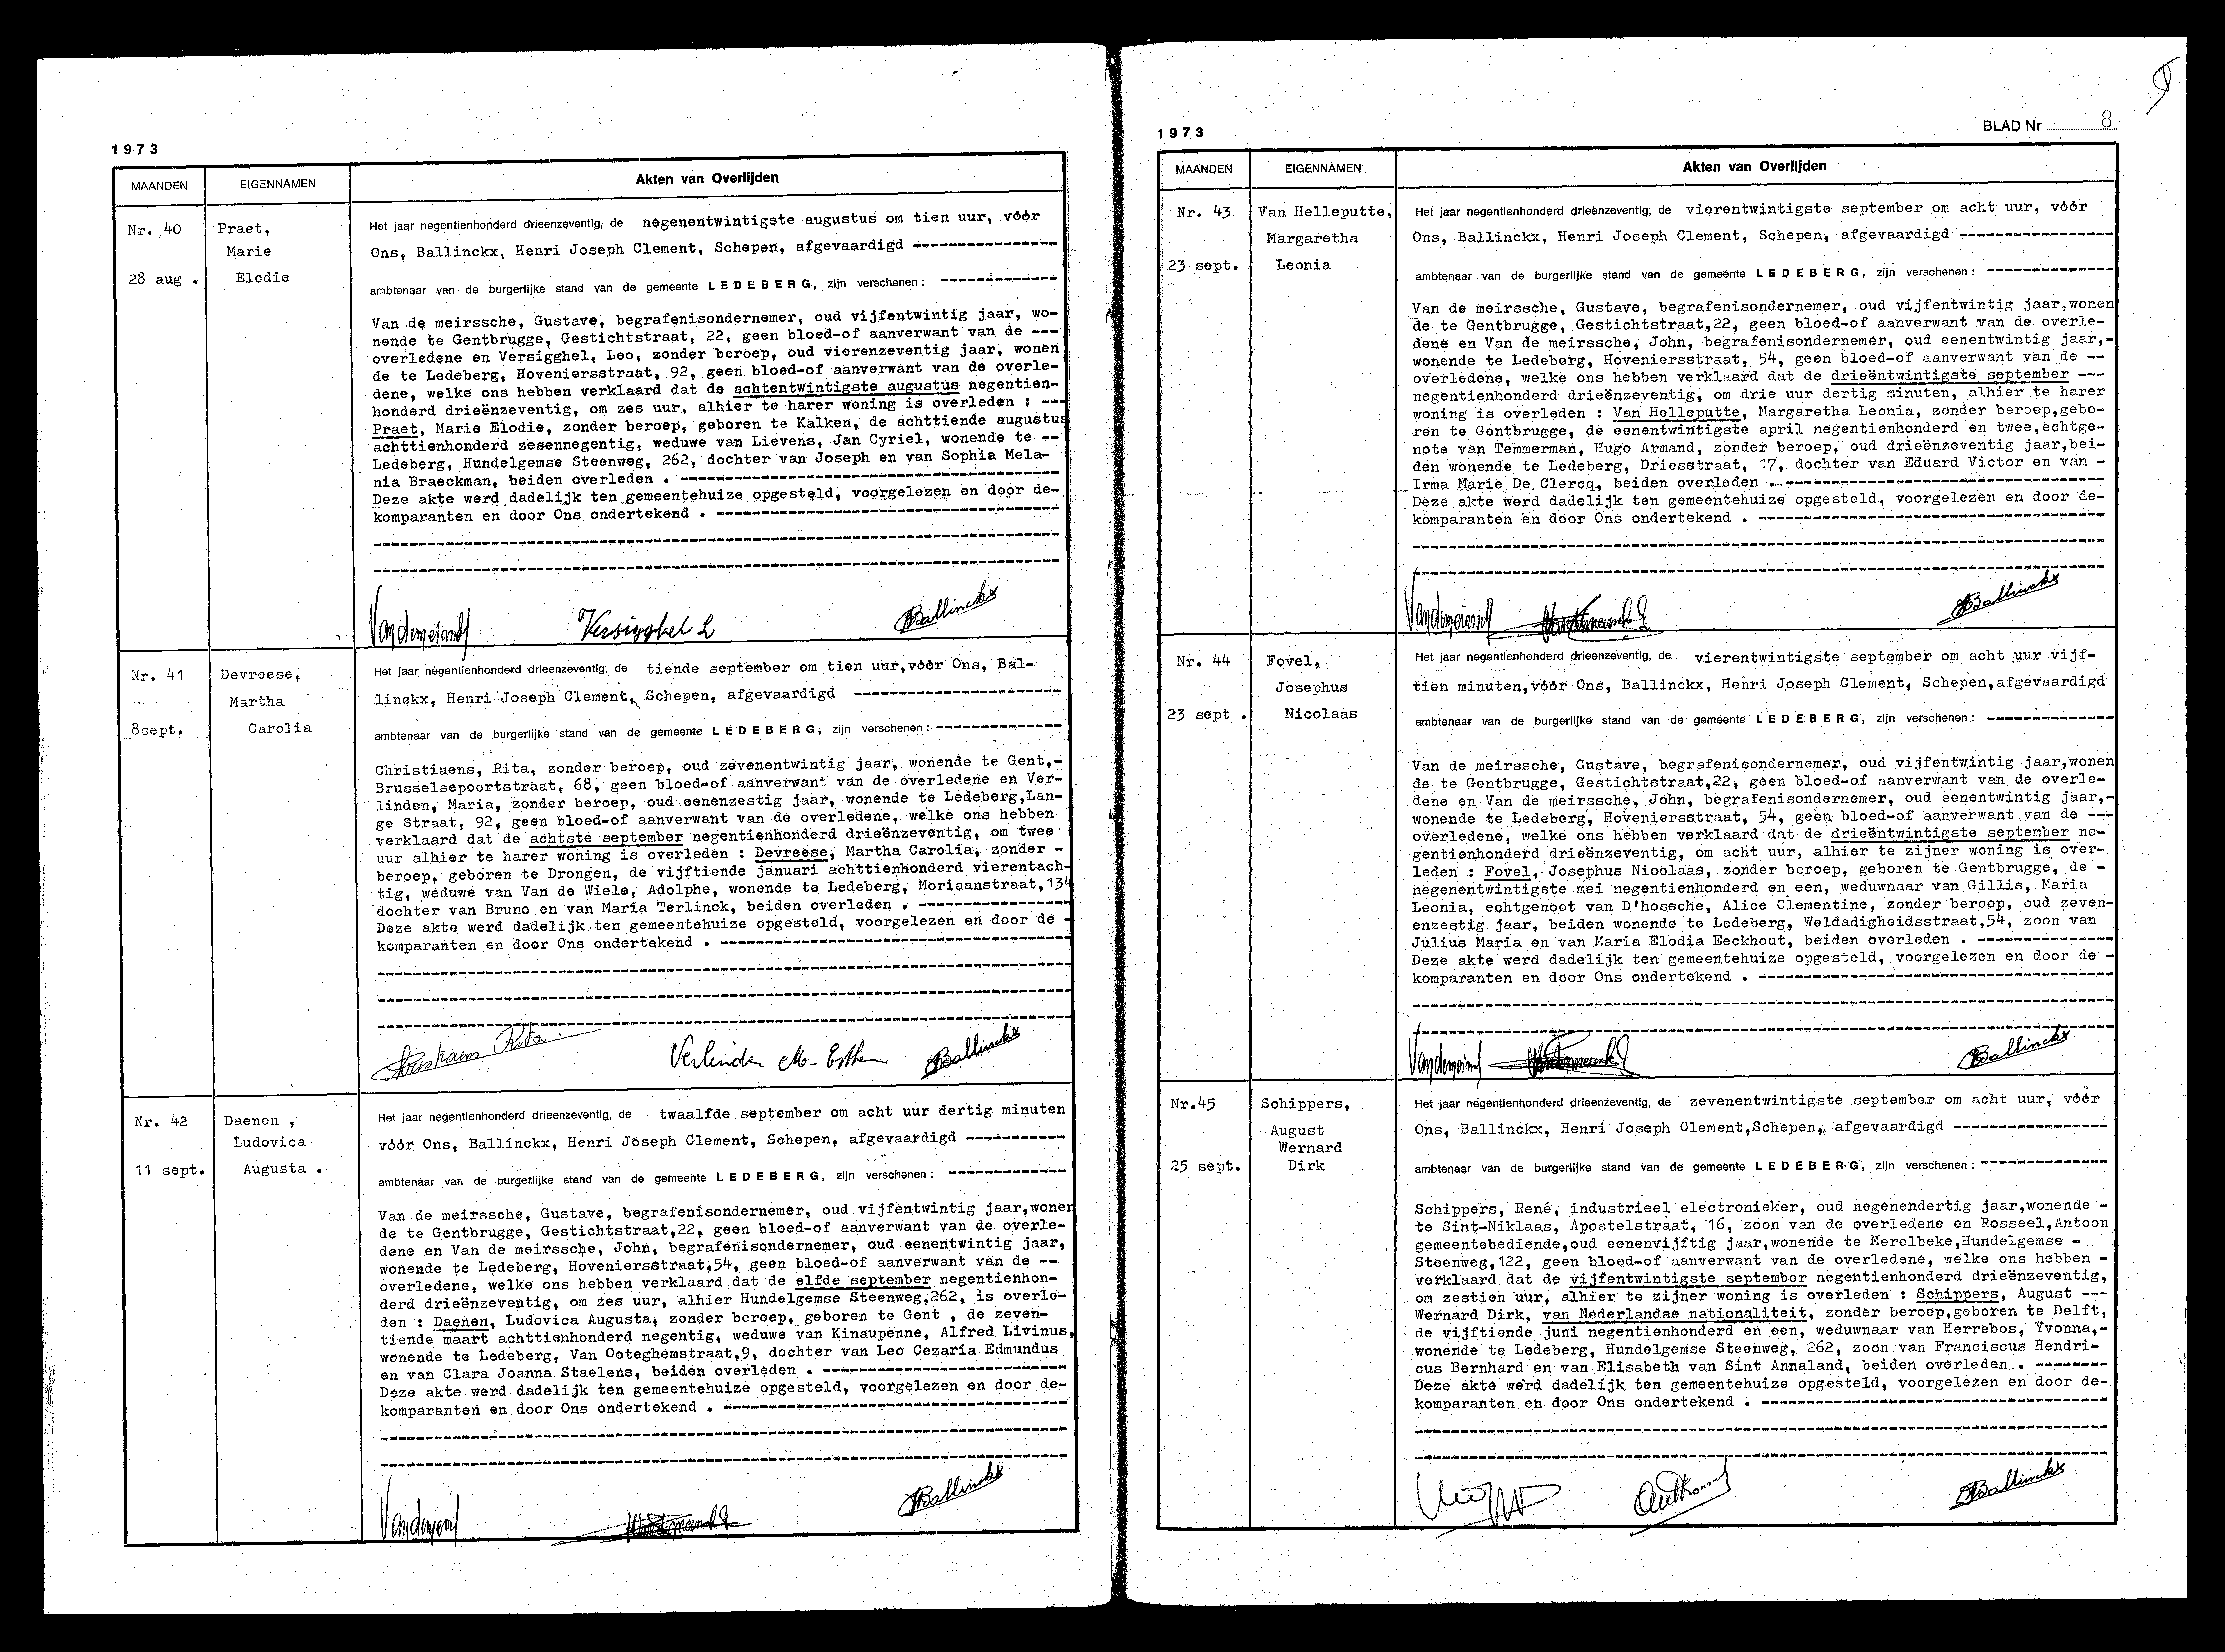 1973
MAANDEN EIGENNAMEN Akten van Overlijden
Nr. 40
28 aug .
Praet,
Marie
Elodie
Het jaar negentienhonderd drieenzeventig, de negenentwintigste augustus om tien uur, vóór
Ons, Ballinckx, Henri Joseph Clement, Schepen, afgevaardigd ---------------
ambtenaar van de burgerlijke stand van de gemeente LEDEBERG, zijn verschenen : ------------
Van de meirssche, Gustave, begrafenisondernemer, oud vijfentwintig jaar, wo-
nende te Gentbrugge, Gestichtstraat, 22, geen bloed-of aanverwant van de ---
overledene en Versigghel, Leo, zonder beroep, oud vierenzeventig jaar, wonen
de te Ledeberg, Hoveniersstraat, 92, geen bloed-of aanverwant van de overle-
dene, welke ons hebben verklaard dat de achtentwintigste augustus negentien-
honderd drieënzeventig, om zes uur, alhier te harer woning is overleden : ---
Praet, Marie Elodie, zonder beroep, geboren te Kalken, de achttiende augustus
achttienhonderd zesennegentig, weduwe van Lievens, Jan Cyriel, wonende te --
Ledeberg, Hundelgemse Steenweg, 262, dochter van Joseph en van Sophia Mela-
nia Braeckman, beiden overleden . ---------------
Deze akte werd dadelijk ten gemeentehuize opgesteld, voorgelezen en door de-
komparanten en door Ons ondertekend . ---------------
Versigghel L Ballinckx
Nr. 41
8sept.
Devreese,
Martha
Carolia
Het jaar negentienhonderd drieenzeventig, de tiende september om tien uur,vóór Ons, Bal-
linckx, Henri Joseph Clement, Schepen, afgevaardigd ---------------
ambtenaar van de burgerlijke stand van de gemeente LEDEBERG, zijn verschenen : ------------
Christiaens, Rita, zonder beroep, oud zevenentwintig jaar, wonende te Gent,-
Brusselsepoortstraat, 68, geen bloed-of aanverwant van de overledene en Ver-
linden, Maria, zonder beroep, oud eenenzestig jaar, wonende te Ledeberg,Lan-
ge Straat, 92, geen bloed-of aanverwant van de overledene, welke ons hebben
verklaard dat de achtste september negentienhonderd drieënzeventig, om twee
uur alhier te harer woning is overleden : Devreese, Martha Carolia, zonder -
beroep, geboren te Drongen, de vijftiende januari achttienhonderd vierentach-
tig, weduwe van Van de Wiele, Adolphe, wonende te Ledeberg, Moriaanstraat,134
dochter van Bruno en van Maria Terlinck, beiden overleden . ---------------
Deze akte werd dadelijk ten gemeentehuize opgesteld, voorgelezen en door de -
komparanten en door Ons ondertekend . ---------------
Christiaens Rita Verlinden M- Esther Ballinckx
Nr. 42
11 sept.
Daenen ,
Ludovica
Augusta .
Het jaar negentienhonderd drieenzeventig, de twaalfde september om acht uur dertig minuten
vóór Ons, Ballinckx, Henri Joseph Clement, Schepen, afgevaardigd -----------
ambtenaar van de burgerlijke stand van de gemeente LEDEBERG, zijn verschenen : ------------
Van de meirssche, Gustave, begrafenisondernemer, oud vijfentwintig jaar,wonen
de te Gentbrugge, Gestichtstraat,22, geen bloed-of aanverwant van de overle-
dene en Van de meirssche, John, begrafenisondernemer, oud eenentwintig jaar,
wonende te Ledeberg, Hoveniersstraat,54, geen bloed-of aanverwant van de --
overledene, welke ons hebben verklaard dat de elfde september negentienhon-
derd drieënzeventig, om zes uur, alhier Hundelgemse Steenweg,262, is overle-
den : Daenen, Ludovica Augusta, zonder beroep, geboren te Gent , de zeven-
tiende maart achttienhonderd negentig, weduwe van Kinaupenne, Alfred Livinus,
wonende te Ledeberg, Van Ooteghemstraat,9, dochter van Leo Cezaria Edmundus
en van Clara Joanna Staelens, beiden overleden . ---------------
Deze akte werd dadelijk ten gemeentehuize opgesteld, voorgelezen en door de-
komparanten en door Ons ondertekend . ---------------
Ballinckx
1973
BLAD Nr 8
MAANDEN EIGENNAMEN Akten van Overlijden
Nr. 43
23 sept.
Van Helleputte,
Margaretha
Leonia
Het jaar negentienhonderd drieenzeventig, de vierentwintigste september om acht uur, vóór
Ons, Ballinckx, Henri Joseph Clement, Schepen, afgevaardigd ---------------
ambtenaar van de burgerlijke stand van de gemeente LEDEBERG, zijn verschenen : ------------
Van de meirssche, Gustave, begrafenisondernemer, oud vijfentwintig jaar,wonen
de te Gentbrugge, Gestichtstraat,22, geen bloed-of aanverwant van de overle-
dene en Van de meirssche, John, begrafenisondernemer, oud eenentwintig jaar,-
wonende te Ledeberg, Hoveniersstraat, 54, geen bloed-of aanverwant van de --
overledene, welke ons hebben verklaard dat de drieëntwintigste september ---
negentienhonderd drieënzeventig, om drie uur dertig minuten, alhier te harer
woning is overleden : Van Helleputte, Margaretha Leonia, zonder beroep,gebo-
ren te Gentbrugge, de eenentwintigste april negentienhonderd en twee,echtge-
note van Temmerman, Hugo Armand, zonder beroep, oud drieënzeventig jaar,bei-
den wonende te Ledeberg, Driesstraat, 17, dochter van Eduard Victor en van -
Irma Marie De Clercq, beiden overleden . ---------------
Deze akte werd dadelijk ten gemeentehuize opgesteld, voorgelezen en door de-
komparanten en door Ons ondertekend . ---------------
Ballinckx
Nr. 44
23 sept .
Fovel,
Josephus
Nicolaas
Het jaar negentienhonderd drieenzeventig, de vierentwintigste september om acht uur vijf-
tien minuten,vóór Ons, Ballinckx, Henri Joseph Clement, Schepen,afgevaardigd
ambtenaar van de burgerlijke stand van de gemeente LEDEBERG, zijn verschenen : ------------
Van de meirssche, Gustave, begrafenisondernemer, oud vijfentwintig jaar,wonen
de te Gentbrugge, Gestichtstraat,22, geen bloed-of aanverwant van de overle-
dene en Van de meirssche, John, begrafenisondernemer, oud eenentwintig jaar,-
wonende te Ledeberg, Hoveniersstraat, 54, geen bloed-of aanverwant van de ---
overledene, welke ons hebben verklaard dat de drieëntwintigste september ne-
gentienhonderd drieënzeventig, om acht uur, alhier te zijner woning is over-
leden : Fovel, Josephus Nicolaas, zonder beroep, geboren te Gentbrugge, de -
negenentwintigste mei negentienhonderd en een, weduwnaar van Gillis, Maria
Leonia, echtgenoot van D'hossche, Alice Clementine, zonder beroep, oud zeven-
enzestig jaar, beiden wonende te Ledeberg, Weldadigheidsstraat,54, zoon van
Julius Maria en van Maria Elodia Eeckhout, beiden overleden . ---------------
Deze akte werd dadelijk ten gemeentehuize opgesteld, voorgelezen en door de -
komparanten en door Ons ondertekend . ---------------
Ballinckx
Nr.45
25 sept.
Schippers,
August
Wernard
Dirk
Het jaar negentienhonderd drieenzeventig, de zevenentwintigste september om acht uur, vóór
Ons, Ballinckx, Henri Joseph Clement,Schepen, afgevaardigd ---------------
ambtenaar van de burgerlijke stand van de gemeente LEDEBERG, zijn verschenen : ------------
Schippers, René, industrieel electronieker, oud negenendertig jaar,wonende -
te Sint-Niklaas, Apostelstraat, 16, zoon van de overledene en Rosseel,Antoon
gemeentebediende,oud eenenvijftig jaar,wonende te Merelbeke,Hundelgemse -
Steenweg,122, geen bloed-of aanverwant van de overledene, welke ons hebben -
verklaard dat de vijfentwintigste september negentienhonderd drieënzeventig,
om zestien uur, alhier te zijner woning is overleden : Schippers, August ---
Wernard Dirk, van Nederlandse nationaliteit, zonder beroep,geboren te Delft,
de vijftiende juni negentienhonderd en een, weduwnaar van Herrebos, Yvonna,-
wonende te Ledeberg, Hundelgemse Steenweg, 262, zoon van Franciscus Hendri-
cus Bernhard en van Elisabeth van Sint Annaland, beiden overleden.. --------
Deze akte werd dadelijk ten gemeentehuize opgesteld, voorgelezen en door de-
komparanten en door Ons ondertekend . ---------------
Ballinckx